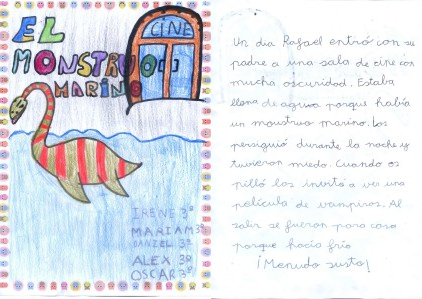 EL
CINE
MONSTRUO
MARINO
IRENE 3º
MARIAM 3º
DANIEL 3º
ALEX 3º
OSCAR 3º
Un dia Rafael entró con su
padre a una sala de cine con
mucha oscuridad. Estaba
llena de agua porque había
un monstruo marino. Los
persiguió durante la noche y
tuvieron miedo. Cuando os
pilló los invitó a ver una
película de vampiros. Al
salir se fueron para casa
porque hacía frío
¡Menudo susto!